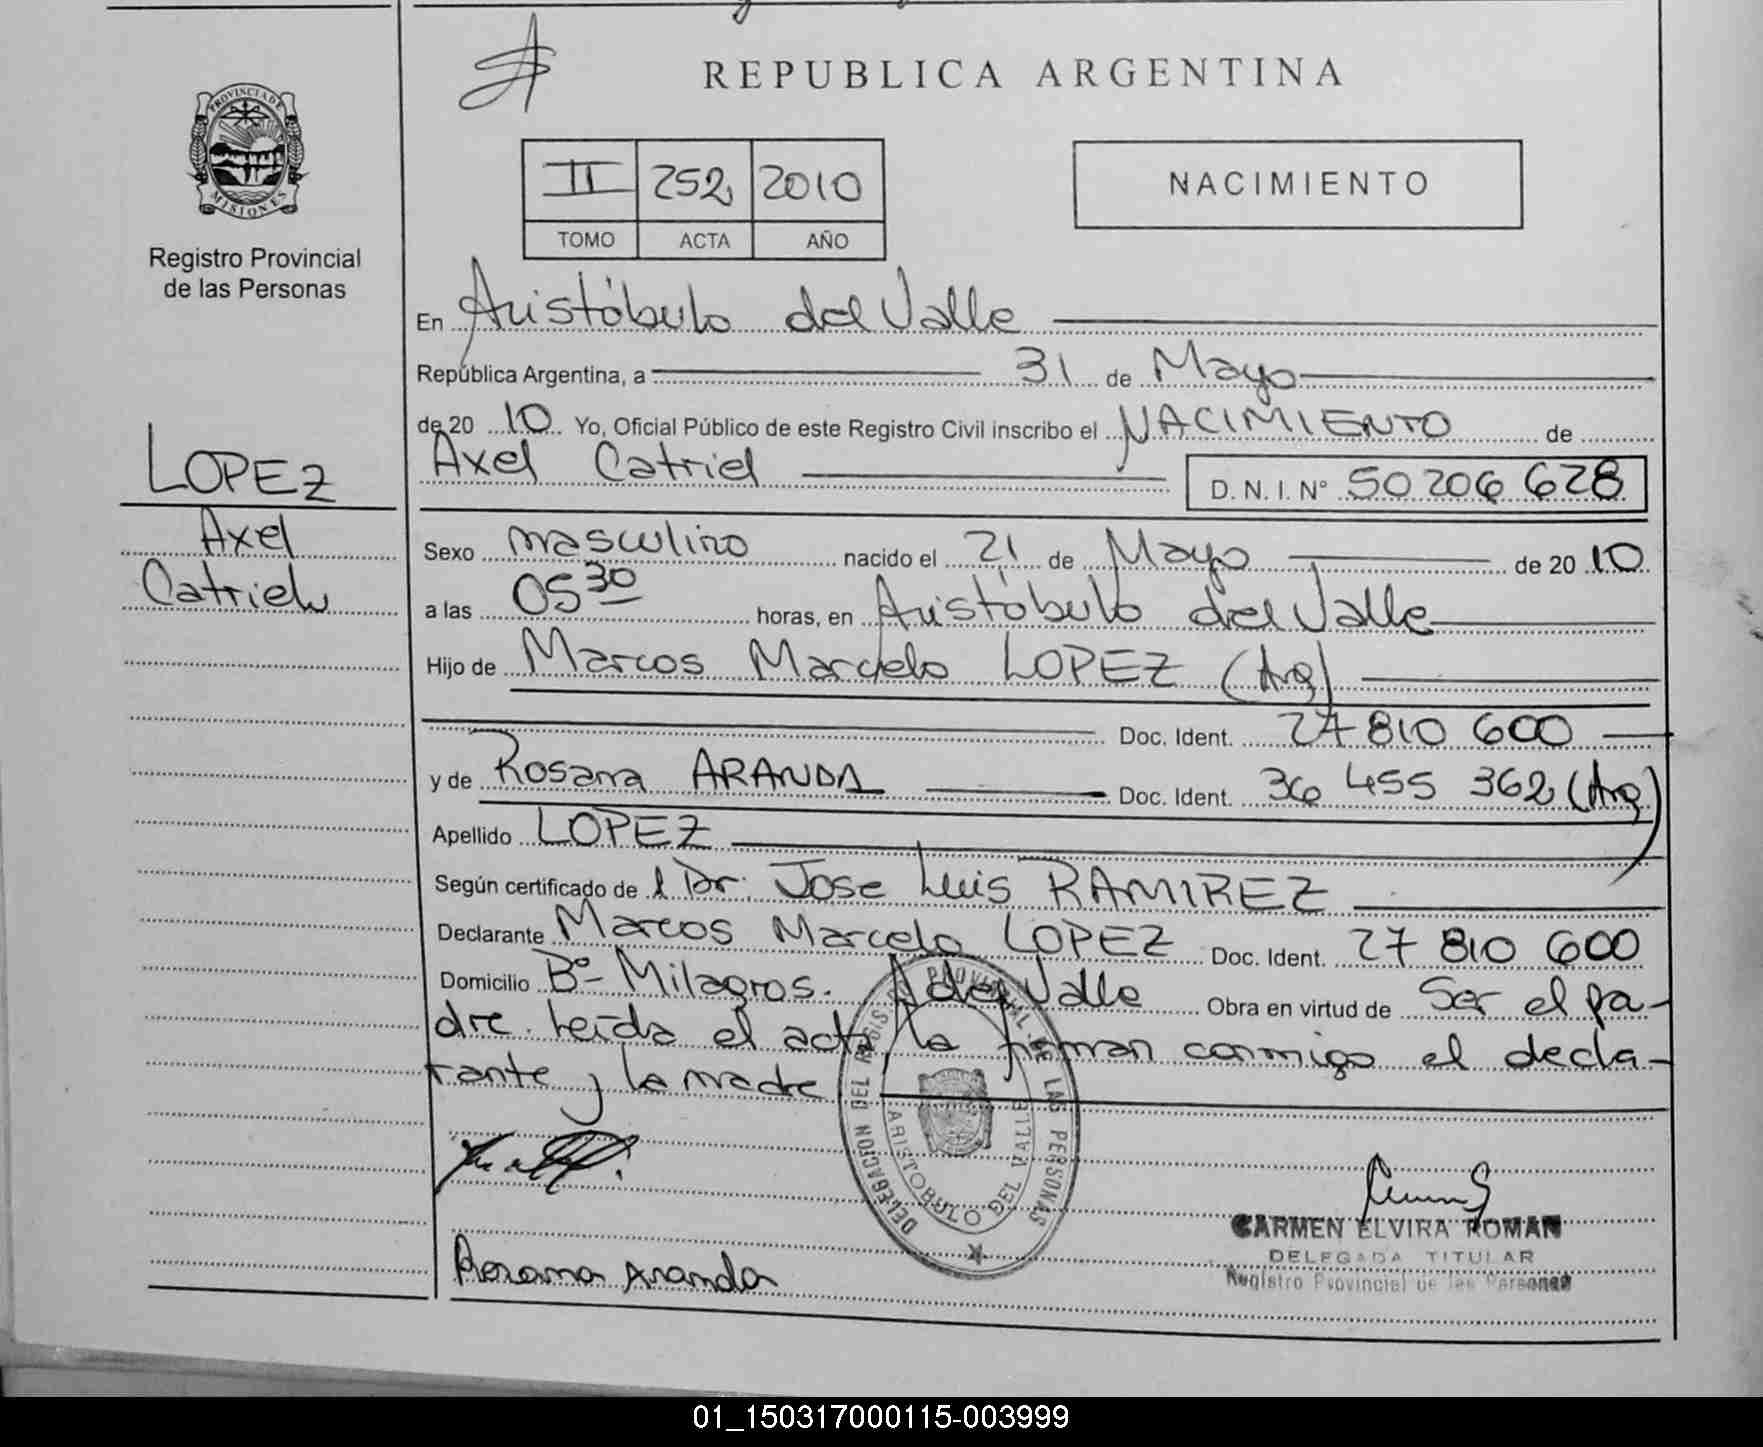 REPUBLICA ARGENTINA
PROVINCIA DE
MISIONES
Registro Provincial
de las Personas
II 252 2010
TOMO ACTA AÑO
NACIMIENTO
En Aristóbulo del Valle
República Argentina, a 31 de Mayo
de 20 10 Yo, Oficial Público de este Registro Civil inscribo el NACIMIENTO de
Axel Catriel D. N. I. N° 50 206 628
LOPEZ
Axel
Catriel
Sexo masculino nacido el 21 de Mayo de 20 10
a las 05 30 horas, en Aristóbulo del Valle
Hijo de Marcos Marcelo LOPEZ (Arg)
Doc. Ident. 27 810 600
y de Rosana ARANDA Doc. Ident. 36 455 362 (Arg)
Apellido LOPEZ
Según certificado de l Dr. Jose Luis RAMIREZ
Declarante Marcos Marcelo LOPEZ Doc. Ident. 27 810 600
Domicilio B° Milagros. A del Valle Obra en virtud de Ser el pa-
dre. Leída el acta, la firman conmigo el decla-
rante y la madre
DELEGACION DEL REGISTRO PROVINCIAL DE LAS PERSONAS
ARISTOBULO DEL VALLE
Rosana Aranda
CARMEN ELVIRA ROMAN
DELEGADA TITULAR
Registro Provincial de las Personas
01_150317000115-003999